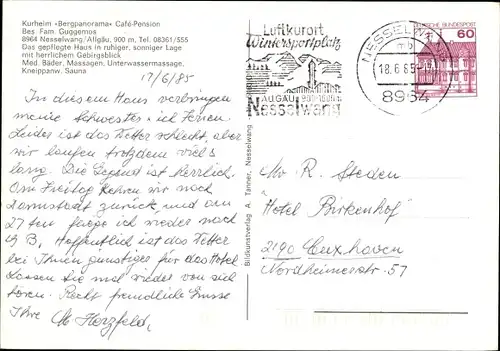 Kurheim »Bergpanorama« Café-Pension
Bes. Fam. Guggemos
8964 Nesselwang/Allgäu, 900 m, Tel. 08361/555
Das gepflegte Haus in ruhiger, sonniger Lage
mit herrlichem Gebirgsblick
Med. Bäder, Massagen, Unterwassermassage,
Kneippanw. Sauna
17/6/85
In diesem Haus verbringen
meine Schwester + ich Ferien.
Leider ist das Wetter schlecht, aber
wir laufen trotzdem viel +
lang. Die Gegend ist herrlich.
Am Freitag kehren wir nach
Darmstadt zurück und am
27ten fliege ich wieder nach
Hoffentlich ist das Wetter
bei Ihnen günstiger für das Hotel
Lassen Sie mal wieder von sich
hören. Recht freundliche Grüsse
Ihre M. Herzfeld
Bildkunstverlag A. Tanner, Nesselwang
Luftkurort
Wintersportplatz
ALLGÄU 900-1600 m
Nesselwang
NESSELWANG
mb
18.6.85
8964
DEUTSCHE BUNDESPOST
60
R. Steden
Hotel Birkenhof
2190 Cuxhaven
Nordheimerstr. 57